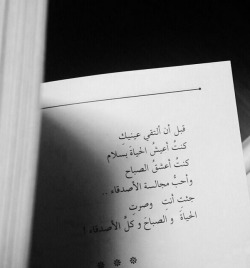 قبل أن ألتقي عينيكِ
كنتُ أعيشُ الحياةَ بسلام
كنتُ أعشقُ الصباح
وأحبُّ مجالسة الأصدقاء ..
جئتِ أنتِ وصرتِ
الحياةَ والصباحَ وكلَّ الأصدقاء !..
* * *